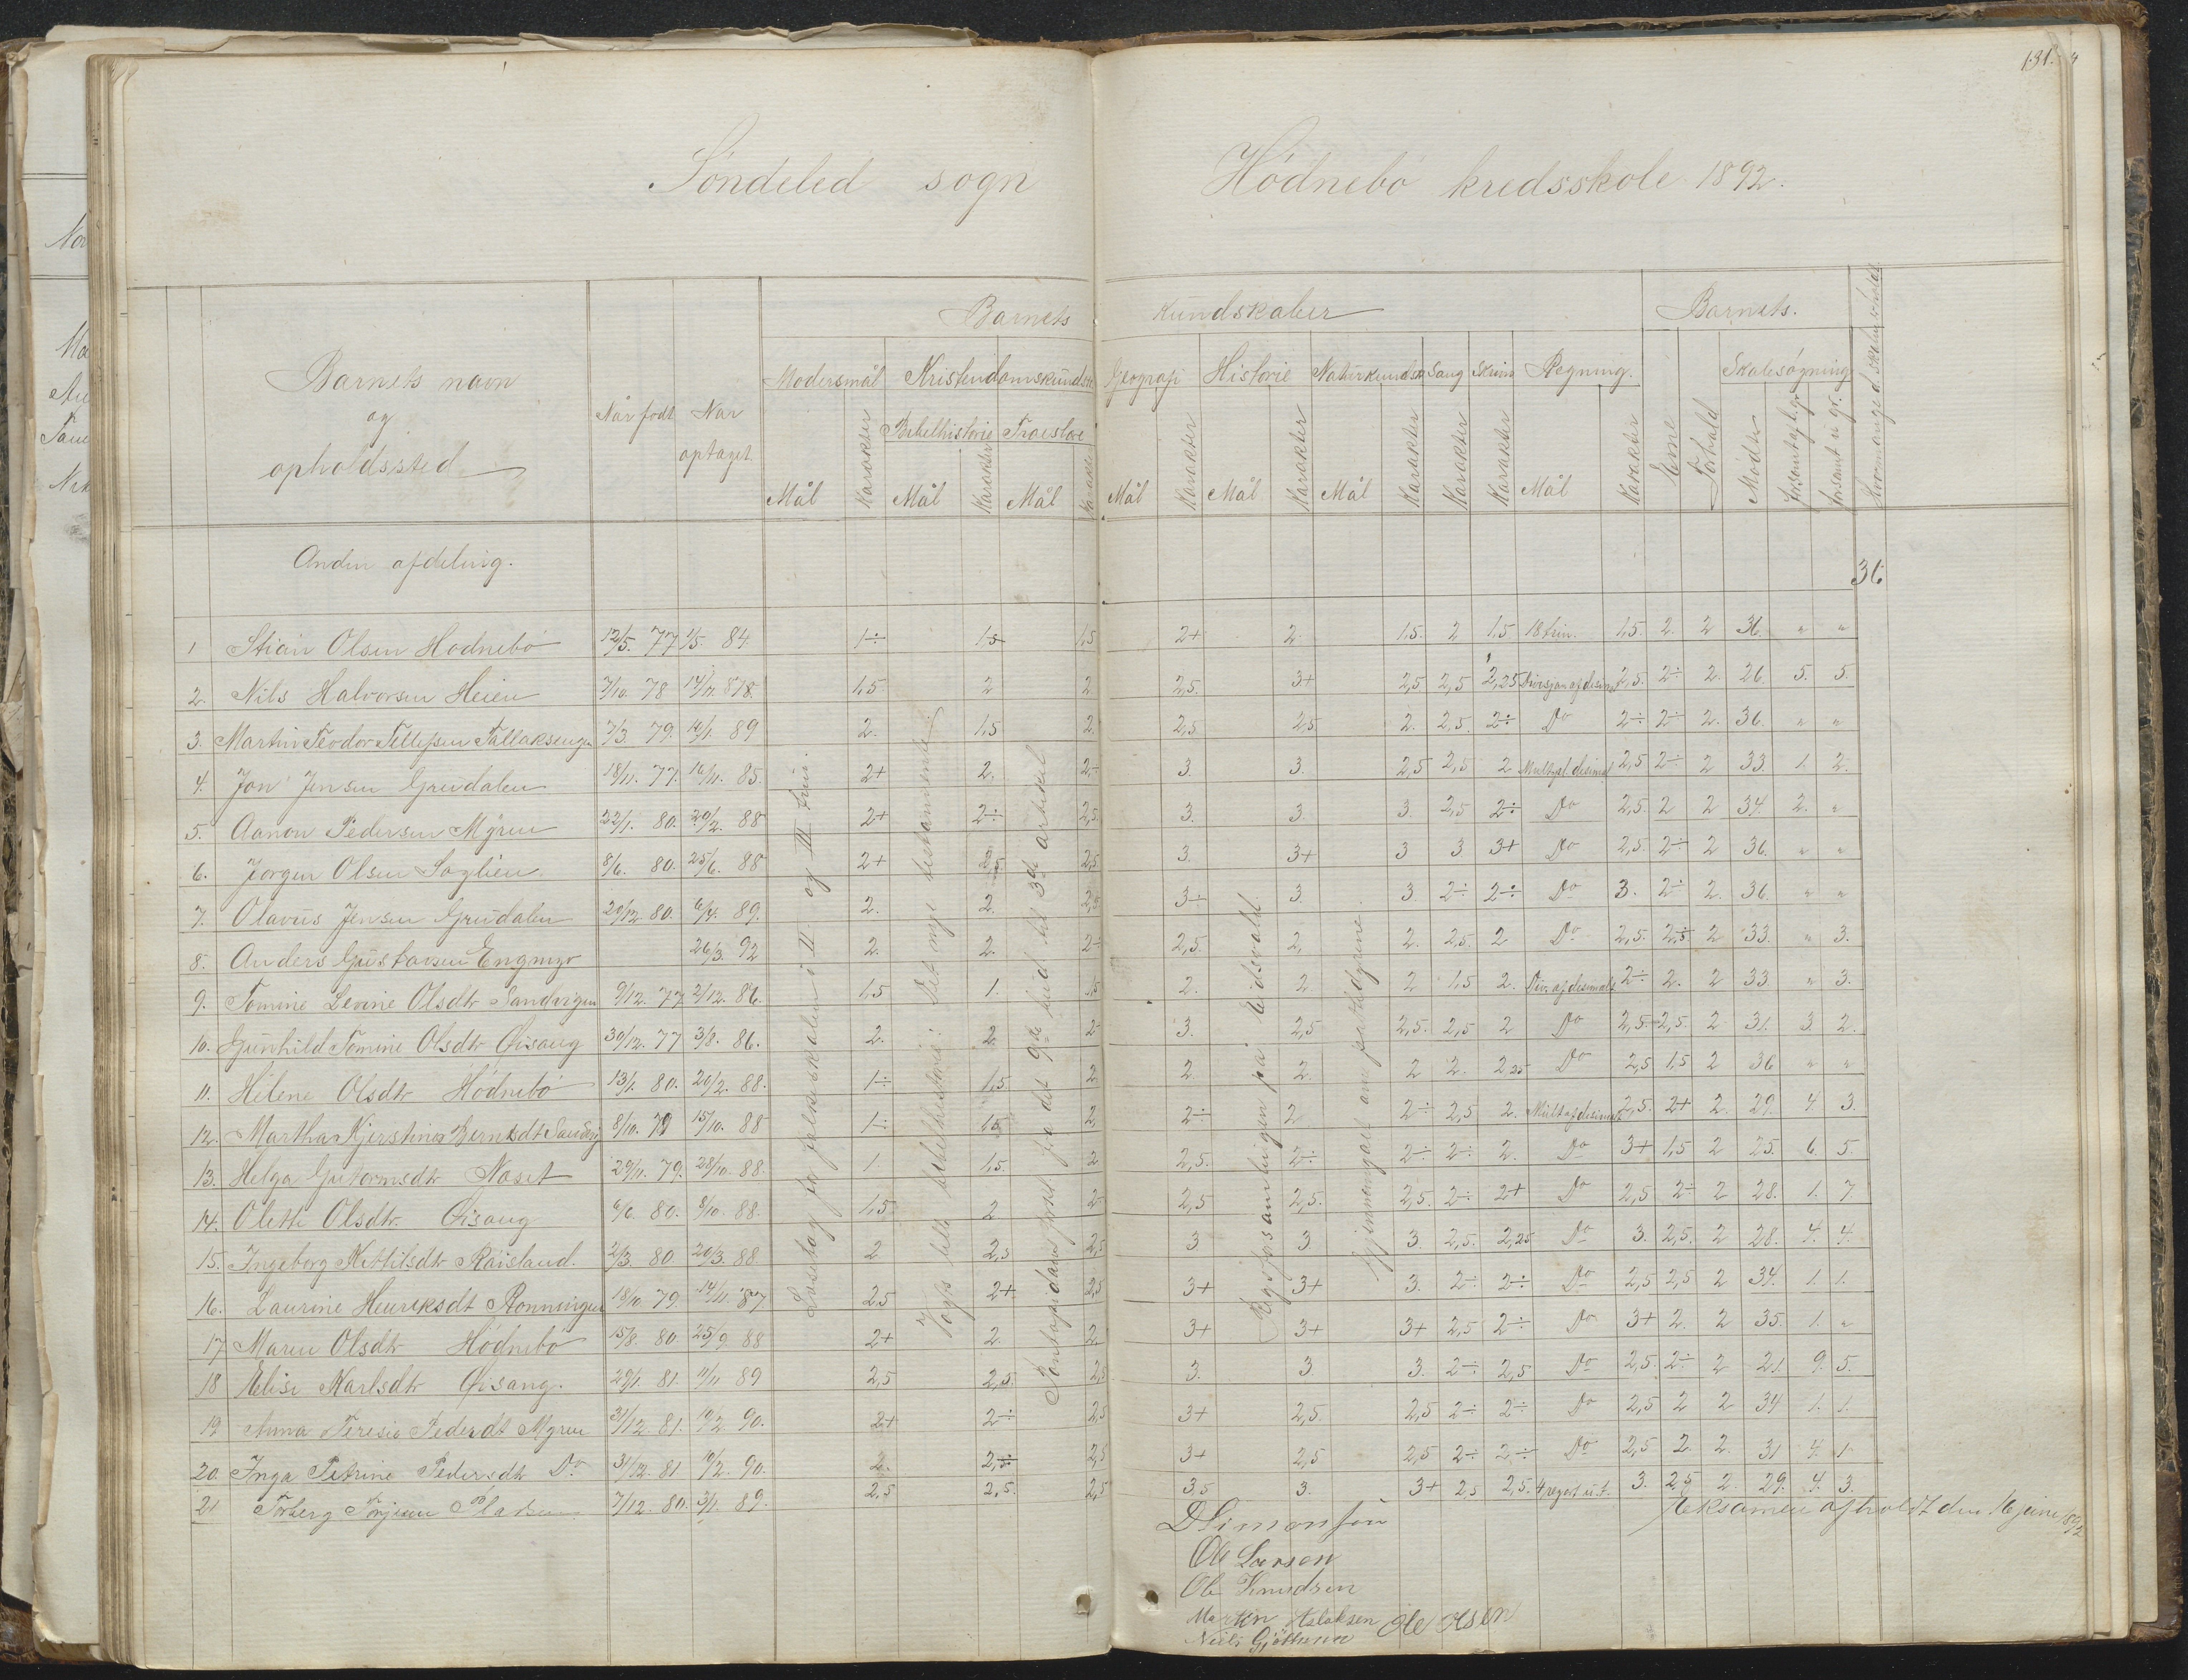 131.
Söndeled sogn Hödnebö kredsskole 1892.
Barnets kundskaber Barnets.
Barnets navn og opholdssted
Når født Når optaget
Modersmål Kristendomskundsk Geografi Historie Naturkundsk Sang Skrivn Regning. Evne Forhold Skolesøgning
Bibelhistorie Troeslære
Mål Karakter Mål Karakter Mål Karakter Mål Karakter Mål Karakter Mål Karakter Karakter Karakter Mål Karakter Mødt
Anden afdeling. 36
1 Stian Olsen Hodnebö 12/5. 77 1/5. 84 1÷ 1,5 1,5 2+ 2. 1,5. 2 1,5 18 trin. 1,5. 2. 2 36. " "
2. Nils Halvorsen Heien 7/10. 78 2 2 2,5. 3+ 2,5 2,5 2,25 2,5. 2÷ 2. 26. 5. 5.
3. Martin Teodor Tellefsen Tallaksengen 7/3. 79. 2. 1,5 2. 2,5 2,5 2. 2,5. 2÷ Do 2÷ 2÷ 2. 36. " "
4. Jon Jensen Grendalen 18/11. 77. 16/11. 85. 2+ 2. 2÷ 3. 3. 2,5 2,5 2 Multipl. desimal 2,5 2÷ 2 33. 1. 2.
5. Aanon Pedersen Myren 22/1. 80. 20/2. 88 2+ 2÷ 2,5. 3. 3. 3. 2,5 2÷ Do 2,5. 2 2 34. 2. "
6. Jorgen Olsen Soglien 8/6. 80. 25/6. 88 2+ 2,5 2,5 3. 3+ 3 3 3+ Do 2,5. 2÷ 2 36. " "
7. Olavus Jensen Grendalen 20/12 80. 6/4. 89. 2. 2. 2,5 3÷ 3. 3. 2÷ 2÷ Do 3. 2÷ 2. 36. " "
8. Anders Gustavsen Engmyr 26/3. 92 2. 2. 2÷ 2,5. 2, 2. 2,5. 2 Do 2,5. 2,5 2 33. " 3.
9. Tomine Levine Olsdtr Sandvigen 9/12. 77 2/12. 86. 1,5 1. 1,5 2. 2 2 1,5 2. Div. af desimals 2÷ 2. 2 33. " 3.
10. Gunhild Tomine Olsdtr Öisang 30/12. 77 3/8. 86. 2. 2 2 3. 2,5 2,5. 2,5 2 Do 2,5. 2,5. 2 31. 3. 2.
11. Helene Olsdtr Hödnebö 13/1. 80. 20/2. 88. 1÷ 1,5 2 2. 2. 2 2. 2,25 Do 2,5 1,5 2 36 " "
12. Martha Kjerstine Berntsdt Sandvig 8/10. 79 15/10. 88 1÷ 1,5 2 2÷ 2 2÷ 2,5 2. Mult af desimal 2,5. 2+ 2. 29. 4 3.
13. Helga Gutormsdtr Naset 29/11. 79. 28/10. 88. 1. 1,5. 2 2,5. 2÷ 2÷ 2÷ 2. Do 3+ 1,5 2 25. 6. 5.
14. Olette Olsdtr. Öisang 6/6. 80. 8/10. 88. 1,5 2 2 2,5 2,5. 2,5. 2÷ 2+ Do 2,5 2÷ 2 28. 1. 7.
15. Ingeborg Kettilsdtr Röisland. 2/3. 80 20/3. 88. 2 2,5 2,5 3 3. 3. 2,5. 2,25 Do 3. 2,5. 2 28. 4. 4.
16. Laurine Henriksdt Ronningen 18/10. 79 14/11. 87 2,5 2+ 2,5 3+ 3+ 3. 2÷ 2÷ Do 2,5 2,5 2 34. 1. 1.
17 Maren Olsdtr Hödnebö 15/8. 80. 25/9 88 2+ 2. 2. 3+ 3+ 3+ 2,5 2÷ Do 3+ 2. 2 35. 1. "
18 Elise Karlsdtr Öisang. 29/1. 81. 11/11 89 2,5 2,5. 2,5 3. 3. 3. 2÷ 2,5 Do 2,5 2÷ 2 21. 9. 5.
19 Anna Teresie Pedersdt Myren 31/12. 81. 10/2 90. 2+ 2÷ 2,5 3+ 2,5. 2,5 2÷ 2÷ Do 2,5 2 2 34 1. 1.
20. Inga Petrine Pedersdtr Do 31/12. 81. 10/2. 90. 2. 2,5 3+ 2,5 2,5 2÷ 2÷ Do 2,5 2. 2. 31 4. 1.
21 Torberg Torjussen 7/12. 80. 3/1. 89. 2,5 2,5. 2,5 3,5 3. 3+ 2,5 2,5. 3. 2,5 2. 29. 4. 3.
Læsebog for folkeskolen i II og III trin.
Vogts bibelhistorie: Det nye testamente
Pontoppidans fork. fra det 9de bud til 3die artikel
Rigsforsamlingen på Eidsvold
Gjennemgået
Eksamen afholdt den 16 juni 1892
D Simonsen
Ole Larsen
Ole Knudsen
Martin Aslaksen Ole Olsen